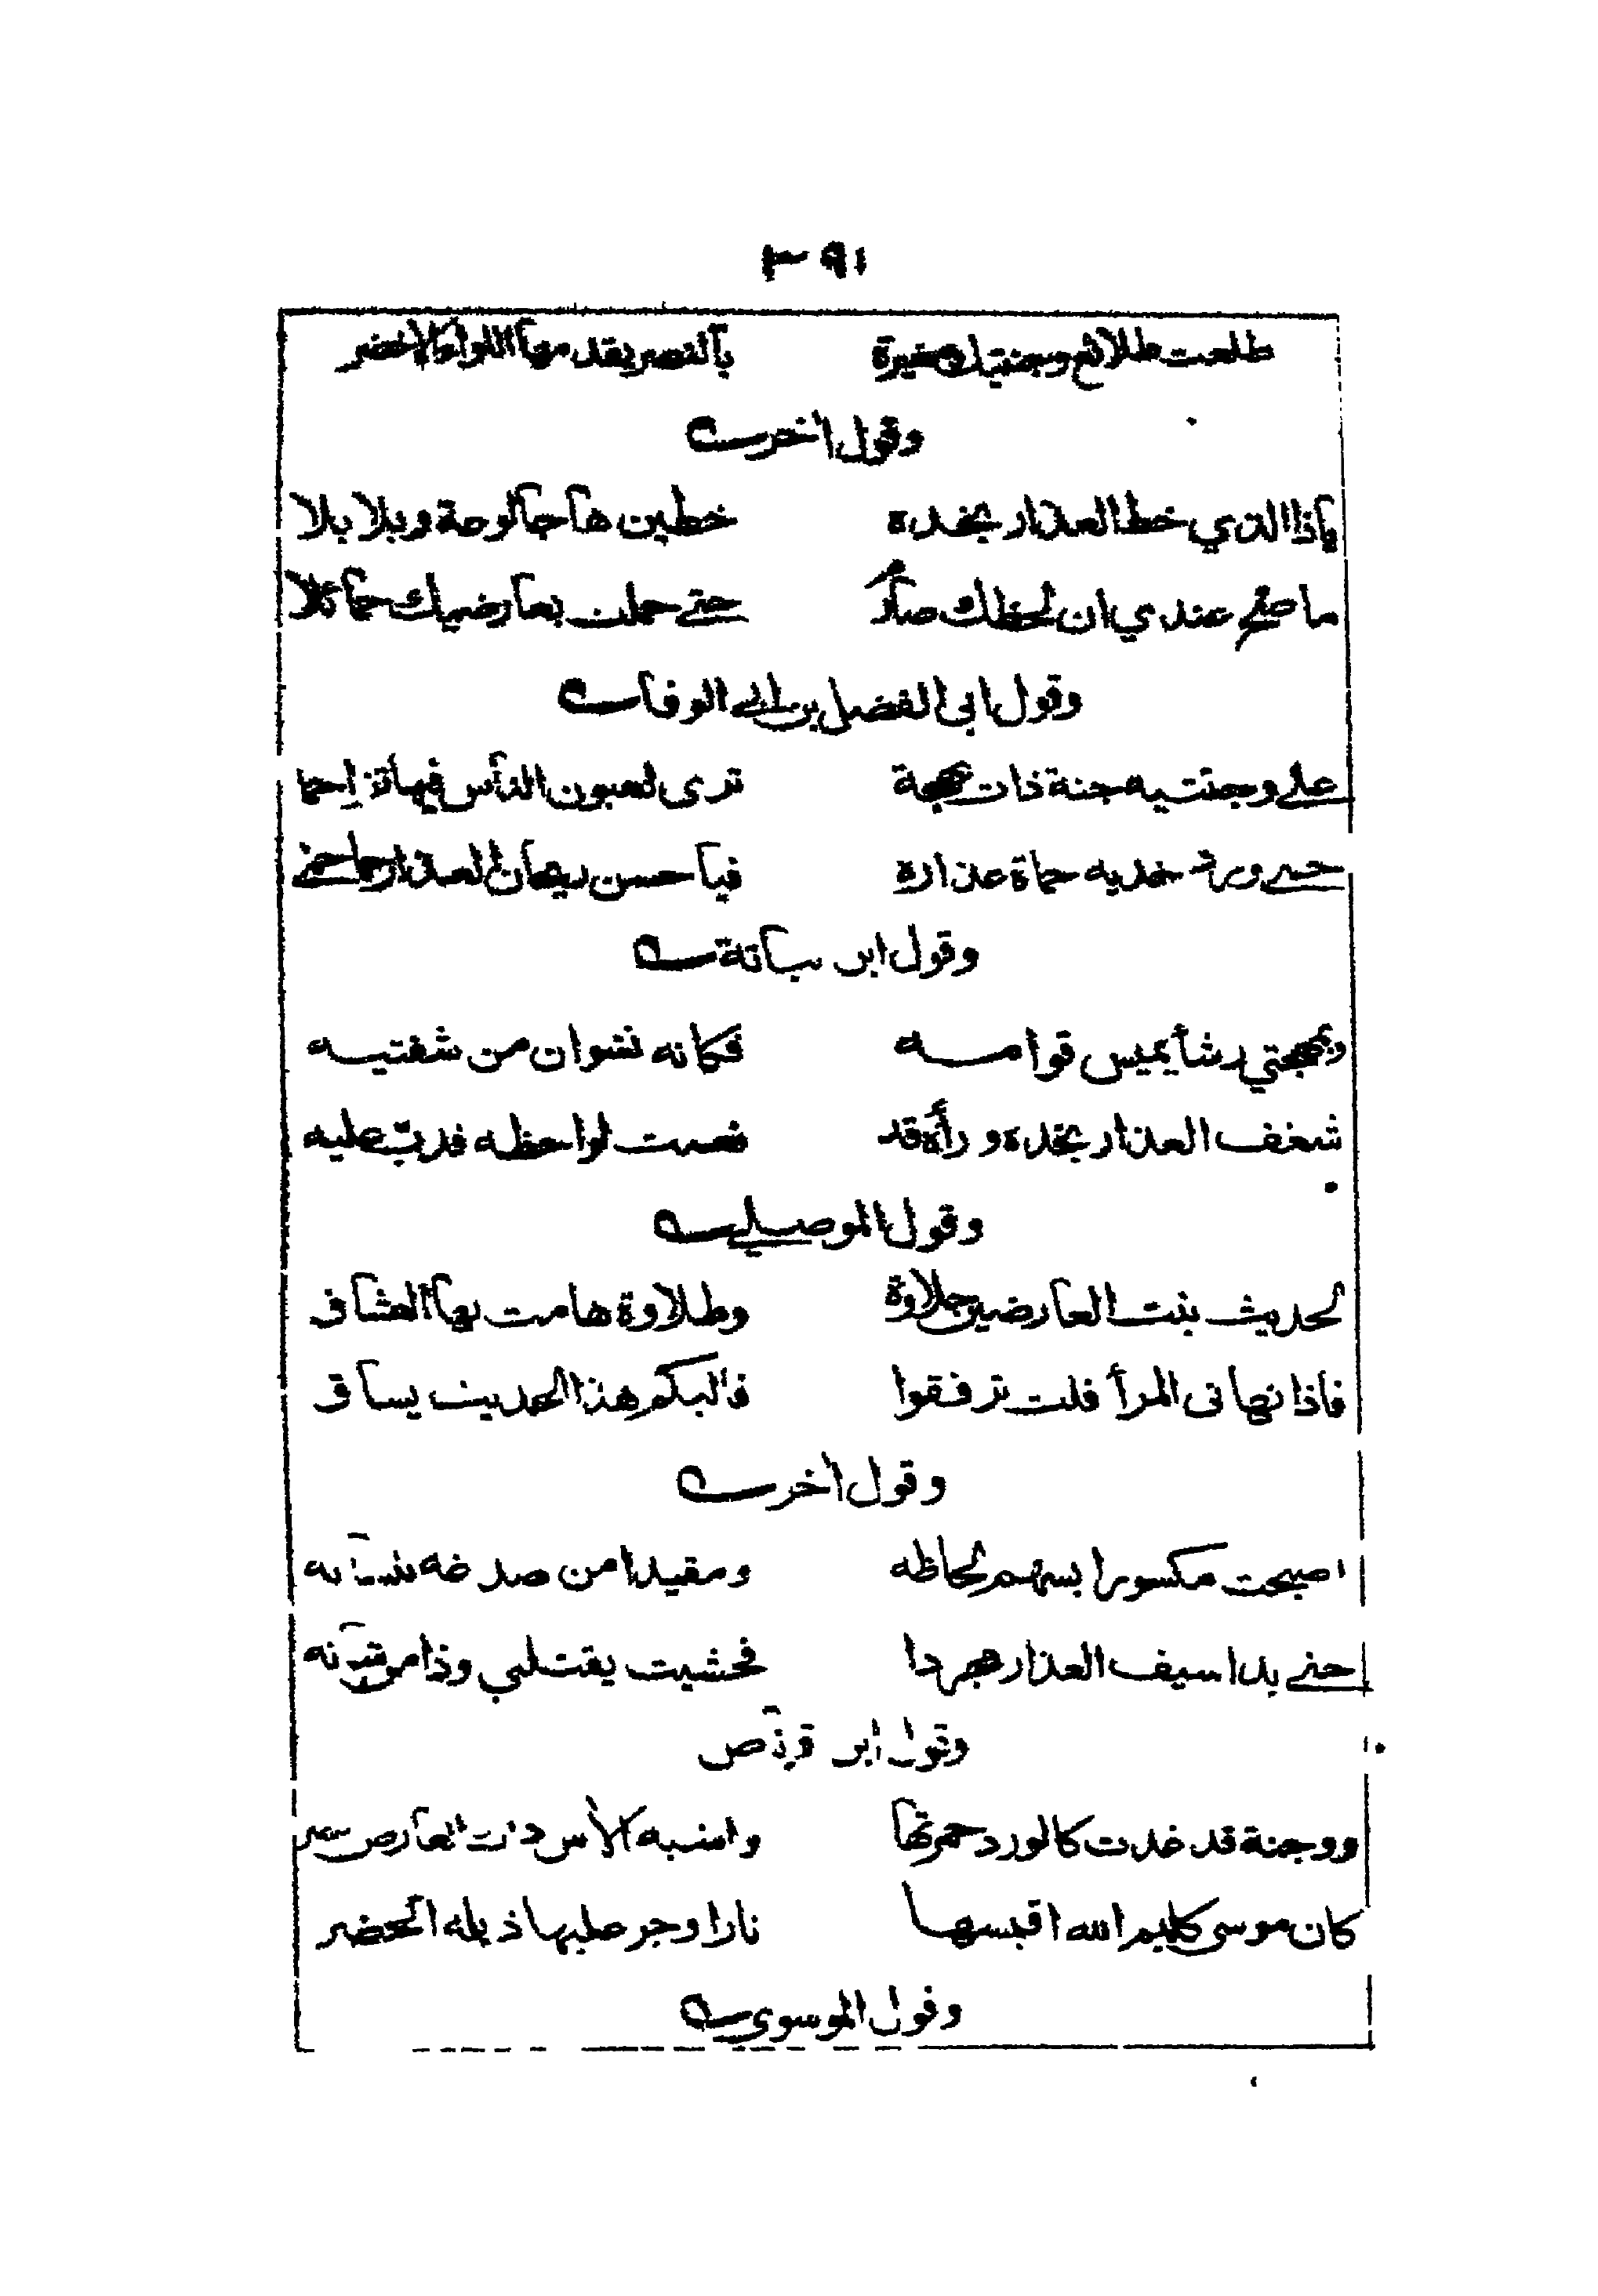 ٣٩١
طلعت طلائع وجنتيك مغيرة بالنصر يقدمها اللواء الاخضر
وقول اخر
ياذا الذي خط العذار بخده خطين هاجا لوعة وبلابلا
ما صح عندي ان لحظك صارم حتى حملت بعارضيك حمائلا
وقول ابى الفضل بن ابى الوفا
على وجنتيه جنة ذات بهجة ترى لعيون الناس فيها تزاحما
حمى ورد خديه حماة عذاره فيا حسن ريحان العذار حماحمى
وقول ابن نباتة
وبمهجتي رشأ يميس قوامه فكانه نشوان من شفتيه
شغف العذار بخده ورأه قد نعست لواحظه فدب عليه
وقول الموصلي
لحديث بنت العارضين حلاوة وطلاوة هامت بها العشاق
فاذا نهانى المرأ قلت ترفقوا فاليكم هذا الحديث يساق
وقول اخر
اصبحت مكسورا بسهم لحاظه ومقيدا من صدغه بلسانه
حتى بدا سيف العذار مجردا فخشيت يقتلني وذا من
وقول ابن قرناص
ووجنة قد غدت كالورد حمرتها الاس العارض
كان موسى كليم الله اقبسها نارا وجر عليها ذيله الخضر
وقول الموسوي